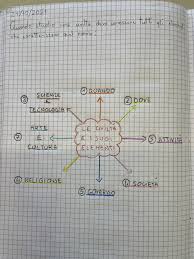 29/10/2021
Quando studio una civiltà devo conoscere tutti gli elementi
che
① QUANDO
② DOVE
③ ATTIVITÀ
④ SOCIETÀ
⑤ GOVERNO
⑥ RELIGIONE
⑦ ARTE
E
CULTURA
⑧ SCIENZE
E
TECNOLOGIA
LE CIVILTÀ
E I SUOI
ELEMENTI